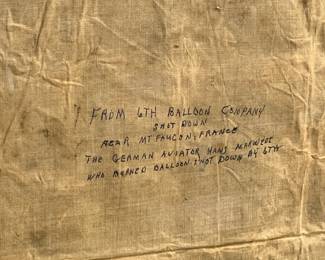 FROM 6TH BALLOON COMPANY
SHOT DOWN
NEAR MT FAUCON, FRANCE
THE GERMAN AVIATOR HANS MARWEDE
WHO BURNED BALLOON SHOT DOWN BY 6TH